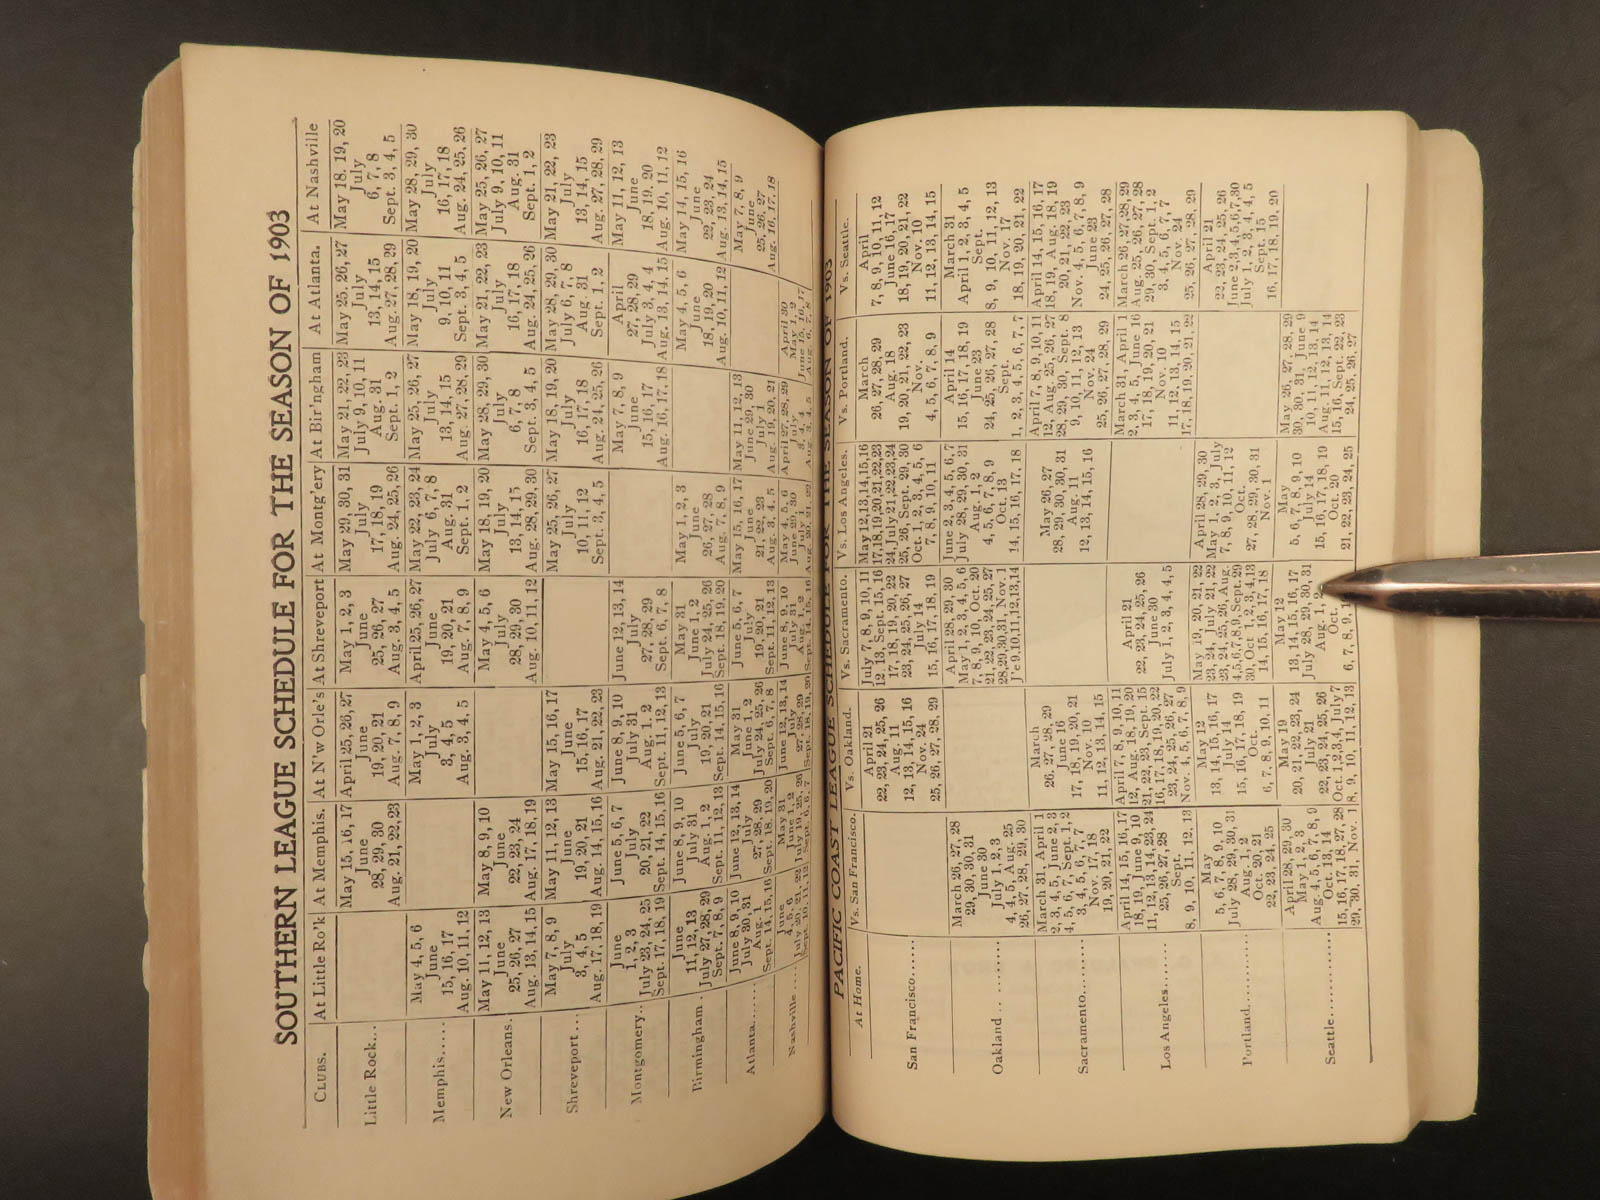 SOUTHERN LEAGUE SCHEDULE FOR THE SEASON OF 1903
CLUBS. At Little Ro'k At Memphis. At N'w Orle's At Shreveport At Montg'ery At Bir'ngham At Atlanta. At Nashville
Little Rock...
May 15, 16, 17
June
28, 29, 30
Aug. 21, 22, 23
April 25, 26, 27
July
19, 20, 21
Aug. 7, 8, 9
May 1, 2, 3
June
25, 26, 27
Aug. 3, 4, 5
May 29, 30, 31
July
17, 18, 19
Aug. 24, 25, 26
May 21, 22, 23
July 9, 10, 11
Aug. 31
Sept. 1, 2
May 25, 26, 27
July
13, 14, 15
Aug. 27, 28, 29
May 18. 19, 20
July
6, 7, 8
Sept. 3, 4, 5
Memphis.....
May 4, 5, 6
June
15, 16, 17
Aug. 10, 11, 12
May 1, 2, 3
July
3, 4, 5
Aug. 3, 4, 5
April 25, 26, 27
June
19, 20, 21
Aug. 7, 8, 9
May 22, 23, 24
July 6, 7, 8
Aug. 31
Sept. 1, 2
May 25, 26, 27
July
13, 14, 15
Aug. 27, 28, 29
May 18, 19, 20
July
9, 10, 11
Sept. 3, 4, 5
May 28, 29, 30
July
16, 17, 18
Aug. 24, 25, 26
New Orleans.
May 11, 12, 13
June
25, 26, 27
Aug. 13, 14, 15
May 8, 9, 10
June
22, 23, 24
Aug. 17, 18, 19
May 4, 5, 6
July
28, 29, 30
Aug. 10, 11, 12
May 18, 19, 20
July
13, 14, 15
Aug. 28, 29, 30
May 28, 29, 30
July
6, 7, 8
Sept. 3, 4, 5
May 21, 22, 23
July
16, 17, 18
Aug. 24, 25, 26
May 25, 26, 27
July 9, 10, 11
Aug. 31
Sept. 1, 2
Shreveport ...
May 7, 8, 9
July
3, 4, 5
Aug. 17, 18, 19
May 11, 12, 13
June
19, 20, 21
Aug. 14, 15, 16
May 15, 16, 17
June
15, 16, 17
Aug. 21, 22, 23
May 25, 26, 27
July
10, 11, 12
Sept. 3, 4, 5
May 18, 19, 20
July
16, 17, 18
Aug. 24, 25, 26
May 28, 29, 30
July 6, 7, 8
Aug. 31
Sept. 1, 2
May 21, 22, 23
July
13, 14, 15
Aug. 27, 28, 29
Montgomery..
June
1, 2, 3
July 23, 24, 25
Sept. 17, 18, 19
June 5, 6, 7
July
20, 21, 22
Sept. 14, 15, 16
June 8, 9, 10
July 31
Aug. 1, 2
Sept. 11, 12, 13
June 12, 13, 14
July
27, 28, 29
Sept. 6, 7, 8
May 7, 8, 9
June
15, 16, 17
Aug. 16, 17, 18
April
27, 28, 29
July 3, 4, 4
Aug. 13, 14, 15
May 11, 12, 13
June
18, 19, 20
Aug. 10, 11, 12
Birmingham .
June
11, 12, 13
July 27, 28, 29
Sept. 7, 8, 9
June 8, 9, 10
July 31
Aug. 1, 2
Sept. 11, 12, 13
June 5, 6, 7
July
19, 20, 21
Sept. 14, 15, 16
May 31
June 1, 2
July 24, 25, 26
Sept. 18, 19, 20
May 1, 2, 3
June
26, 27, 28
Aug. 7, 8, 9
May 4, 5, 6
June
18, 19, 20
Aug. 10, 11, 12
May 14, 15, 16
June
22, 23, 24
Aug. 13, 14, 15
Atlanta......
June 8, 9, 10
July 30, 31
Aug. 1
Sept. 14, 15, 16
June 12, 13, 14
July
27, 28, 29
Sept. 18, 19, 20
May 31
June 1, 2
July 24, 25, 26
Sept. 6, 7, 8
June 5, 6, 7
July
19, 20, 21
Sept. 11, 12, 13
May 15, 16, 17
June
21, 22, 23
Aug. 3, 4, 5
May 11, 12, 13
June 29, 30
July 1
Aug. 19, 20, 21
May 7, 8, 9
June
25, 26, 27
Aug. 16, 17, 18
Nashville ....
June
May 31
June 1, 2
June 12, 13, 14
July
27, 28, 29
Sept. 18, 19, 20
June 8, 9, 10
July 31
Aug. 1, 2
Sept. 14, 15, 16
May 4, 5, 6
June 29, 30
July 1
Aug. 20, 21, 22
April 27, 28, 29
July
3, 4, 4
Aug. 3, 4, 5
April 30
May 1, 2
June 15, 16, 17
Aug. 6, 7, 8
PACIFIC COAST LEAGUE SCHEDULE FOR THE SEASON OF 1903
At Home. Vs. San Francisco. Vs. Oakland. Vs. Sacramento. Vs. Los Angeles. Vs. Portland. Vs. Seattle.
San Francisco.....
April 21
22, 23, 24, 25, 26
Aug. 11
12, 13, 14, 15, 16
Nov. 24
25, 26, 27, 28, 29
July 7, 8, 9, 10, 11
12, 13, Sept. 15, 16
17, 18, 19, 20, 22
23, 24, 25, 26, 27
July 14
15, 16, 17, 18, 19
May 12, 13, 14, 15, 16
17, 18, 19, 20, 21, 22, 23
24, July 21, 22, 23, 24
25, 26, Sept. 29, 30
Oct. 1, 2, 3, 4, 5, 6
7, 8, 9, 10, 11
March
26, 27, 28, 29
Aug. 18
19, 20, 21, 22, 23
Nov.
4, 5, 6, 7, 8, 9
April
7, 8, 9, 10, 11, 12
June 16, 17
18, 19, 20, 21, 22
Nov. 10
11, 12, 13, 14, 15
Oakland .. .......
March 26, 27, 28
29, 30, 30, 31
June 30
July 1, 2, 3
4, 4, 5, Aug. 25
26, 27, 28, 29, 30
April 28, 29, 30
May 1, 2, 3, 4, 5, 6
7, 8, 9, 10, Oct. 20
21, 22, 23, 24, 25, 27
28, 29, 30, 31, Nov. 1
J'e 9, 10, 11, 12, 13, 14
June 2, 3, 4, 5, 6, 7
July 28, 29, 30, 31
Aug. 1, 2
4, 5, 6, 7, 8, 9
Oct. 13
14, 15, 16, 17, 18
April 14
15, 16, 17, 18, 19
June 23
24, 25, 26, 27, 28
Sept.
1, 2, 3, 4, 5, 6, 7, 7
March 31
April 1, 2, 3, 4, 5
Sept.
8, 9, 10, 11, 12, 13
Nov. 17
18, 19, 20, 21, 22
Sacramento......
March 31, April 1
2, 3, 4, 5, June 2, 3
4, 5, 6, 7, Sept. 1, 2
3, 4, 5, 6, 7, 7
Nov. 17, 18
19, 20, 21, 22
March
26, 27, 28, 29
June 16
17, 18, 19, 20, 21
Nov. 10
11, 12, 13, 14, 15
May 26, 27
28, 29, 30, 30, 31
Aug. 11
12, 13, 14, 15, 16
April 7, 8, 9, 10, 11
12, Aug. 25, 26, 27
28, 29, 30, Sept. 8
9, 10, 11, 12, 13
Nov. 24
25, 26, 27, 28, 29
April 14, 15, 16, 17
18, 19, Aug. 18, 19
20, 21, 22, 23
Nov. 4, 5, 6, 7, 8, 9
June 23
24, 25, 26, 27, 28
Los Angeles......
April 14, 15, 16, 17
18, 19, June 9, 10
11, 12, 13, 14, 23, 24
25, 26, 27, 28
Sept.
8, 9, 10, 11, 12, 13
April 7, 8, 9, 10, 11
12, Aug. 18, 19, 20
21, 22, 23, Sept. 15
16, 17, 18, 19, 20, 22
23, 24, 25, 26, 27
Nov. 4, 5, 6, 7, 8, 9
April 21
22, 23, 24, 25, 26
June 30
July 1, 2, 3, 4, 4, 5
March 31, April 1
2, 3, 4, 5, June 16
17, 18, 19, 20, 21
Nov. 10
11, 12, 13, 14, 15
17, 18, 19, 20, 21, 22
March 26, 27, 28, 29
Aug. 25, 26, 27, 28
29, 30, Sept. 1, 2
3, 4, 5, 6, 7, 7
Nov. 24
25, 26, 27, 28, 29
Portland..........
May
5, 6, 7, 8, 9, 10
July 28, 29, 30, 31
Aug. 1, 2
Oct. 20, 21
22, 23, 24, 25
May 12
13, 14, 15, 16, 17
July 14
15, 16, 17, 18, 19
Oct.
6, 7, 8, 9, 10, 11
May 19, 20, 21, 22
23, 24, July 21, 22
23, 24, 25, 26, Aug.
4, 5, 6, 7, 8, 9, Sept. 29
30, Oct. 1, 2, 3, 4, 13
14, 15, 16, 17, 18
April 28, 29, 30
May 1, 2, 3, July
7, 8, 9, 10, 11, 12
Oct.
27, 28, 29, 30, 31
Nov. 1
April 21
22, 23, 24, 25, 26
June 2, 3, 4, 5, 6, 7, 30
July 1, 2, 3, 4, 4, 5
Sept. 15
16, 17, 18, 19, 20
Seattle...........
April 28, 29, 30
May 1, 2, 3
Aug. 4, 5, 6, 7, 8, 9
Oct. 13, 14
15, 16, 17, 18, 27, 28
29, 30, 31, Nov. 1
May 19
20, 21, 22, 23, 24
July 21
22, 23, 24, 25, 26
Oct. 1, 2, 3, 4, July 7
8, 9, 10, 11, 12, 13
May 12
13, 14, 15, 16, 17
July 28, 29, 30, 31
Aug. 1, 2
Oct.
6, 7, 8, 9, 1
May
5, 6, 7, 8, 9, 10
July 14
15, 16, 17, 18, 19
Oct. 20
21, 22, 23, 24, 25
May 26, 27, 28, 29
30, 30, 31, June 9
10, 11, 12, 13, 14
Aug. 11, 12, 13, 14
15, 16, Sept. 22, 23
24, 25, 26, 27